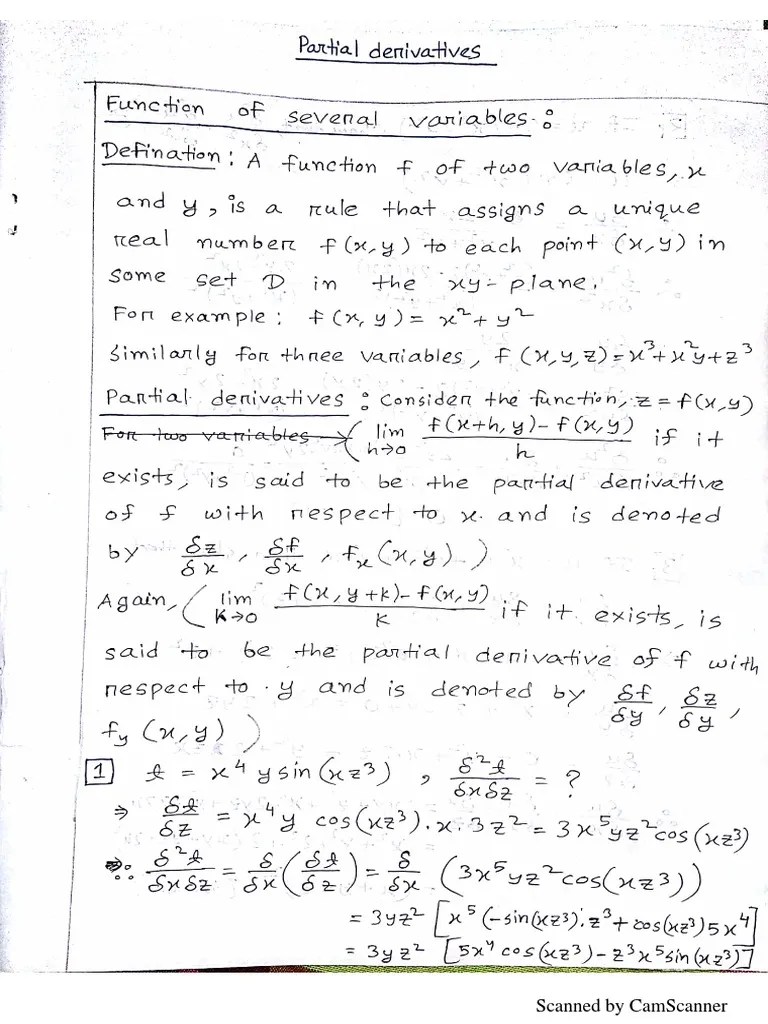 Partial derivatives
Function of several variables :
Defination : A function f of two variables, x
and y, is a rule that assigns a unique
real number f(x,y) to each point (x,y) in
some set D in the xy-plane.
For example : f(x,y) = x²+y²
Similarly for three variables, f(x,y,z)=x³+x²y+z³
Partial derivatives : Consider the function, z = f(x,y)
For two variables → ( lim h→0 (f(x+h,y)-f(x,y))/h if it
exists, is said to be the partial derivative
of f with respect to x and is denoted
by δz/δx , δf/δx , fₓ(x,y) )
Again, ( lim k→0 (f(x,y+k)-f(x,y))/k if it exists, is
said to be the partial derivative of f with
respect to y and is denoted by δf/δy , δz/δy ,
f_y (x,y) )
1 t = x⁴ y sin(xz³) , δ²t/δxδz = ?
⇒ δt/δz = x⁴y cos(xz³).x.3z² = 3x⁵yz²cos(xz³)
∴ δ²t/δxδz = δ/δx (δt/δz) = δ/δx (3x⁵yz²cos(xz³))
= 3yz² [x⁵(-sin(xz³).z³+cos(xz³)5x⁴]
= 3yz² [5x⁴cos(xz³)-z³x⁵sin(xz³)]
Scanned by CamScanner